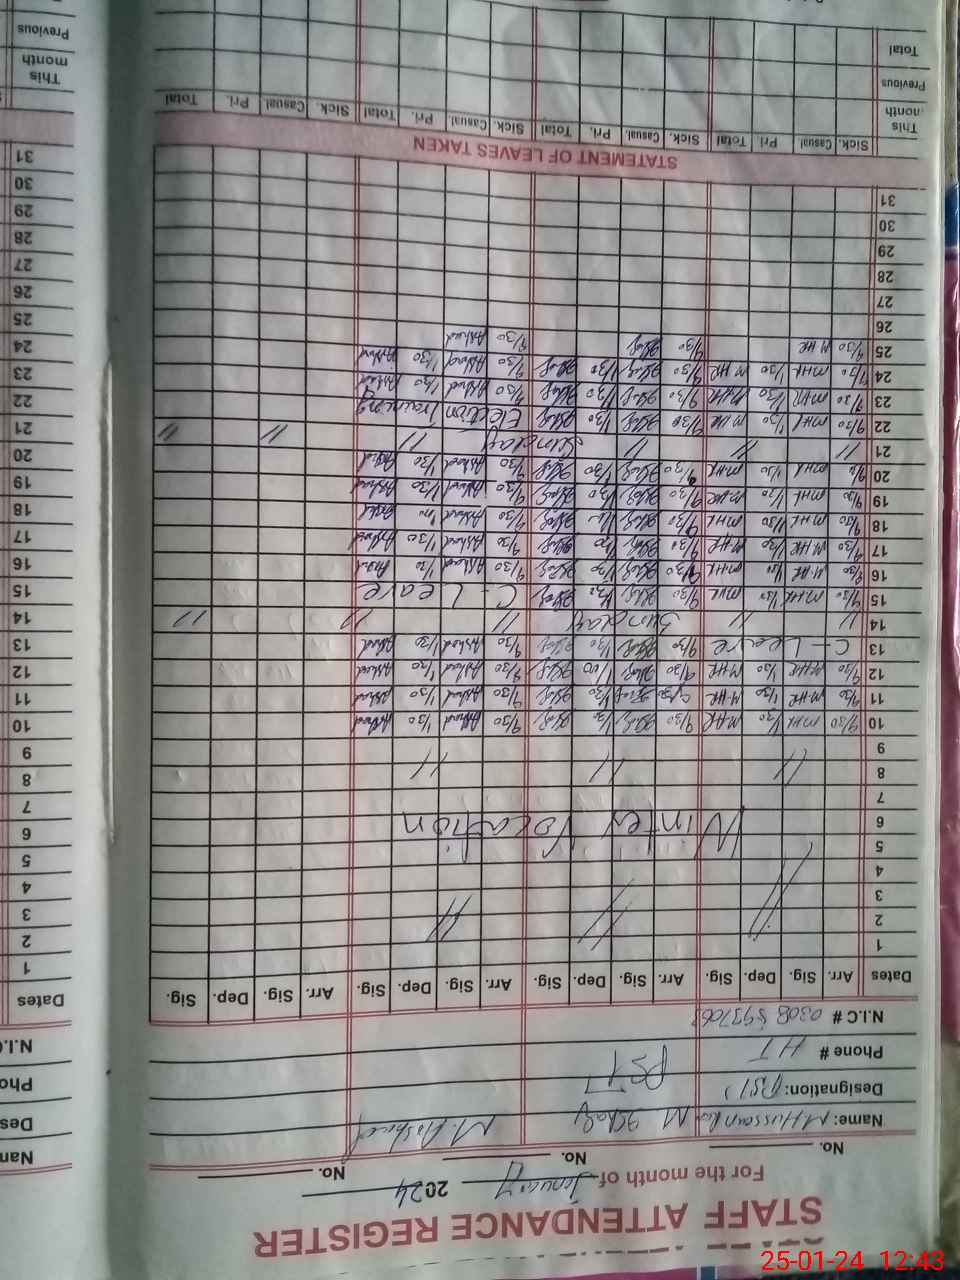 STAFF ATTENDANCE REGISTER
For the month of January 2024
No. No. No.
Name: M Hussain M Ishaq M. Arshad
Designation: (PST) PST
Phone # HT
N.I.C #
Dates Arr. Sig. Dep. Sig. Arr. Sig. Dep. Sig. Arr. Sig. Dep. Sig. Arr. Sig. Dep. Sig.
1
2 // // //
3
4
5
6 Winter Vocation
7
8 // // //
9
10 9/30 MHR 1/30 MHR 9/30 Ishaq 1/30 Ishaq 9/30 Arshad 1/30 Arshad
11 9/30 MHR 1/30 MHR 9/30 Ishaq 1/30 Ishaq 9/30 Arshad 1/30 Arshad
12 9/30 MHR 1/30 MHR 9/30 Ishaq Ishaq 9/30 Arshad 1/30 Arshad
13 C - Leave 9/30 Ishaq 1/30 Ishaq 9/30 Arshad 1/30 Arshad
14 // // Sunday // // //
15 9/30 MHR 1/30 MHR 9/30 Ishaq 1/30 Ishaq C - Leave
16 9/30 MHR 1/30 MHR 9/30 Ishaq 1/30 Ishaq 9/30 Arshad 1/30 Arshad
17 9/30 MHR 1/30 MHR 9/30 Ishaq 1/30 Ishaq 9/30 Arshad 1/30 Arshad
18 9/30 MHR 1/30 MHR 9/30 Ishaq Ishaq 9/30 Arshad Arshad
19 9/30 MHR 1/30 MHR 9/30 Ishaq 1/30 Ishaq 9/30 Arshad 1/30 Arshad
20 MHR 1/30 MHR 9/30 Ishaq 1/30 Ishaq 9/30 Arshad 1/30 Arshad
21 // // // Sunday // // //
22 9/30 MHR 1/30 MHR 9/30 Ishaq 1/30 Ishaq Election Training
23 9/30 MHR 1/30 MHR 9/30 Ishaq 1/30 Ishaq 9/30 Arshad 1/30 Arshad
24 9/30 MHR 1/30 MHR 9/30 Ishaq 1/30 Ishaq 9/30 Arshad 1/30 Arshad
25 9/30 MHR 9/30 Ishaq 9/30 Arshad
26
27
28
29
30
31
STATEMENT OF LEAVES TAKEN
Sick. Casual Pri. Total Sick. Casual. Pri. Total Sick. Casual. Pri. Total Sick. Casual. Pri. Total
This month
Previous
Total
Dates
1
2
3
4
5
6
7
8
9
10
11
12
13
14
15
16
17
18
19
20
21
22
23
24
25
26
27
28
29
30
31
This month
Previous
25-01-24 12:43